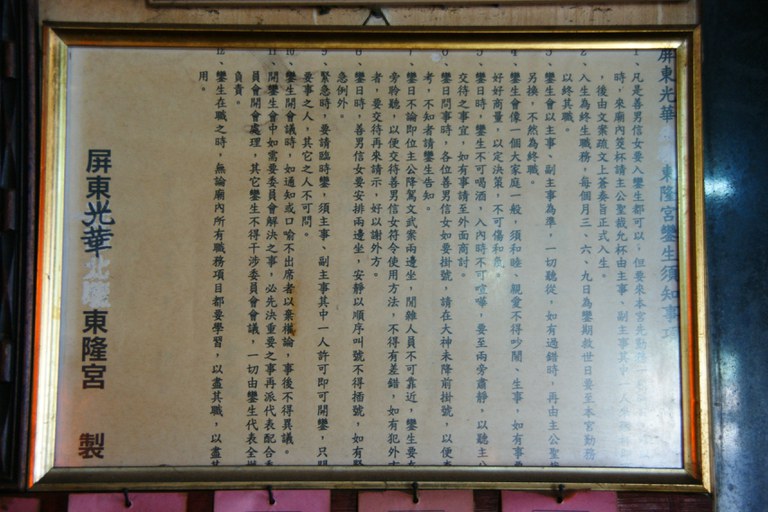 屏東光華 東隆宮鑾生須知事項
1、凡是善男信女要入鑾生都可以,但要來本宮先勤
時,來廟內筊杯請主公聖裁允杯由主事、副主事其中一人
後由文案疏文上蒼奏旨正式入生。
2、入生為終生職務,每個月三、六、九日為鑾期救世日要至本宮勤務
以終其職。
3、鑾生會以主事、副主事為準,一切聽從,如有過錯時,再由主公聖
另換,不然為終職。
4、鑾生會像一個大家庭一般,須和睦、親愛不得吵鬧、生事,如有事
好好商量,以定決策,不可傷和氣。
5、鑾日時,鑾生不可喝酒,入內時不可喧嘩,要至兩旁肅靜,以聽主
交待之事宜,如有事請至外面商討。
6、鑾日問事時,各位善男信女如要掛號,請在大神未降前掛號,以便
考,不知者請鑾生告知。
7、鑾日不論即位主公降駕文武案兩邊坐,閒雜人員不可靠近,鑾生要
旁聆聽,以便交待善男信女符令使用方法,不得有差錯,如有犯外
者,要交待再來請示,好以謝外方。
8、鑾日時,善男信女要安排兩邊坐,安靜以順序叫號不得插號,如有緊
急例外。
9、緊急時,要請臨時鑾,須主事、副主事其中一人許可即可開鑾,只
要事之人,其它之人不可問。
10、鑾生開會議時,如通知或口喻不出席者以棄權論,事後不得異議。
11、開鑾生會中如需要委員會解決之事,必先決重要之事再派代表配合
員會開會處理,其它鑾生不得干涉委員會會議,一切由鑾生代表全
負責。
12、鑾生在職之時,無論廟內所有職務項目都要學習,以盡其職,以盡其
用。
屏東光華北龍東隆宮 製